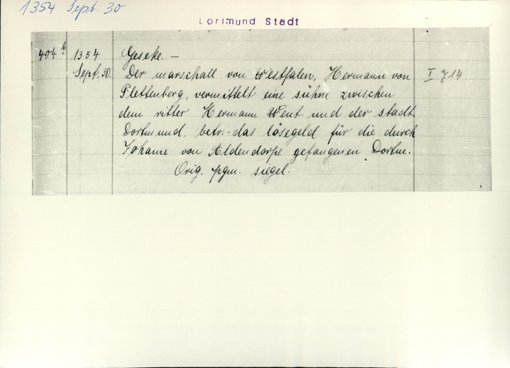 1354 Sept. 30
Dortmund Stadt
404 b 1354 Geseke. —
Sept. 30. Der marschall von Westfalen, Hermann von I 714
Plettenberg, vermittelt eine sühne zwischen
dem ritter Hermann Went und der stadt
Dortmund, betr. das lösegeld für die durch
Johann von Aldendorpe gefangenen Dortm.
Orig. pgm. siegel.